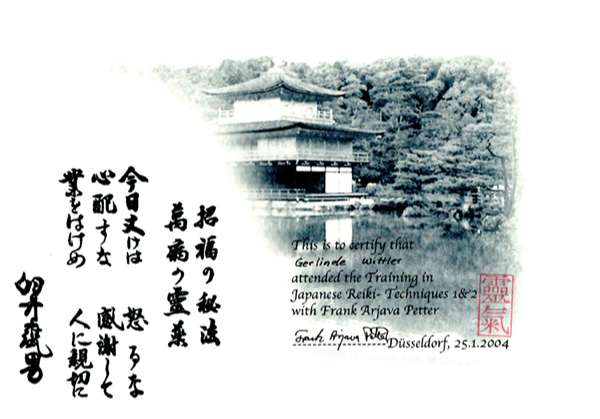 招福の秘法
萬病の靈薬
今日丈けは 怒るな
心配すな 感謝して
業をはげめ 人に親切に
臼井甕男
This is to certify that
Gerlinde Wittler
attended the Training in
Japanese Reiki- Techniques 1&2
with Frank Arjava Petter
Frank Arjava Petter
Düsseldorf, 25.1.2004
靈氣